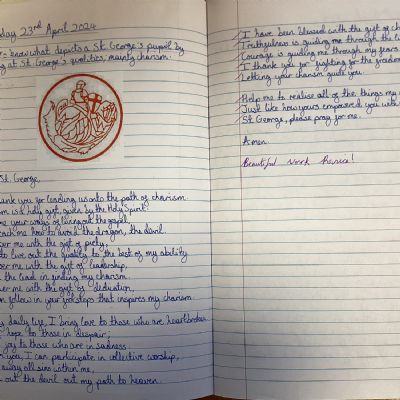 day 23rd April 2024
know what depicts a St. George's pupil by
at St. George's qualities, mainly charism.
St. George,
thank you for leading us onto the path of charism.
is a holy gift, given by the Holy Spirit.
me your ways of living out the gospel
teach me how to avoid the dragon, the devil.
me with the gift of piety,
to live out the quality to the best of my ability
me with the gift of leadership,
the Lord in finding my charism.
me with the gift of dedication,
follow in your footsteps that inspires my charism
daily life, I bring love to those who are heartbroken
hope to those in despair,
joy to those who are in sadness.
you, I can participate in collective worship,
away all sins within me,
out the devil out my path to heaven.
I have been blessed with the gift of
Truthfulness is guiding me through the
Courage is guiding me through my years.
I thank you for fighting for the
Letting your charism guide you.
Help me to realise all of the things my
Just like how yours empowered you with
St George, please pray for me.
Amen.
Beautiful work